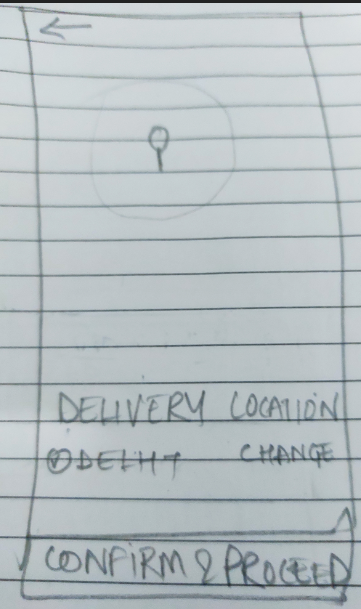 DELIVERY LOCATION
DELHI CHANGE
CONFIRM & PROCEED